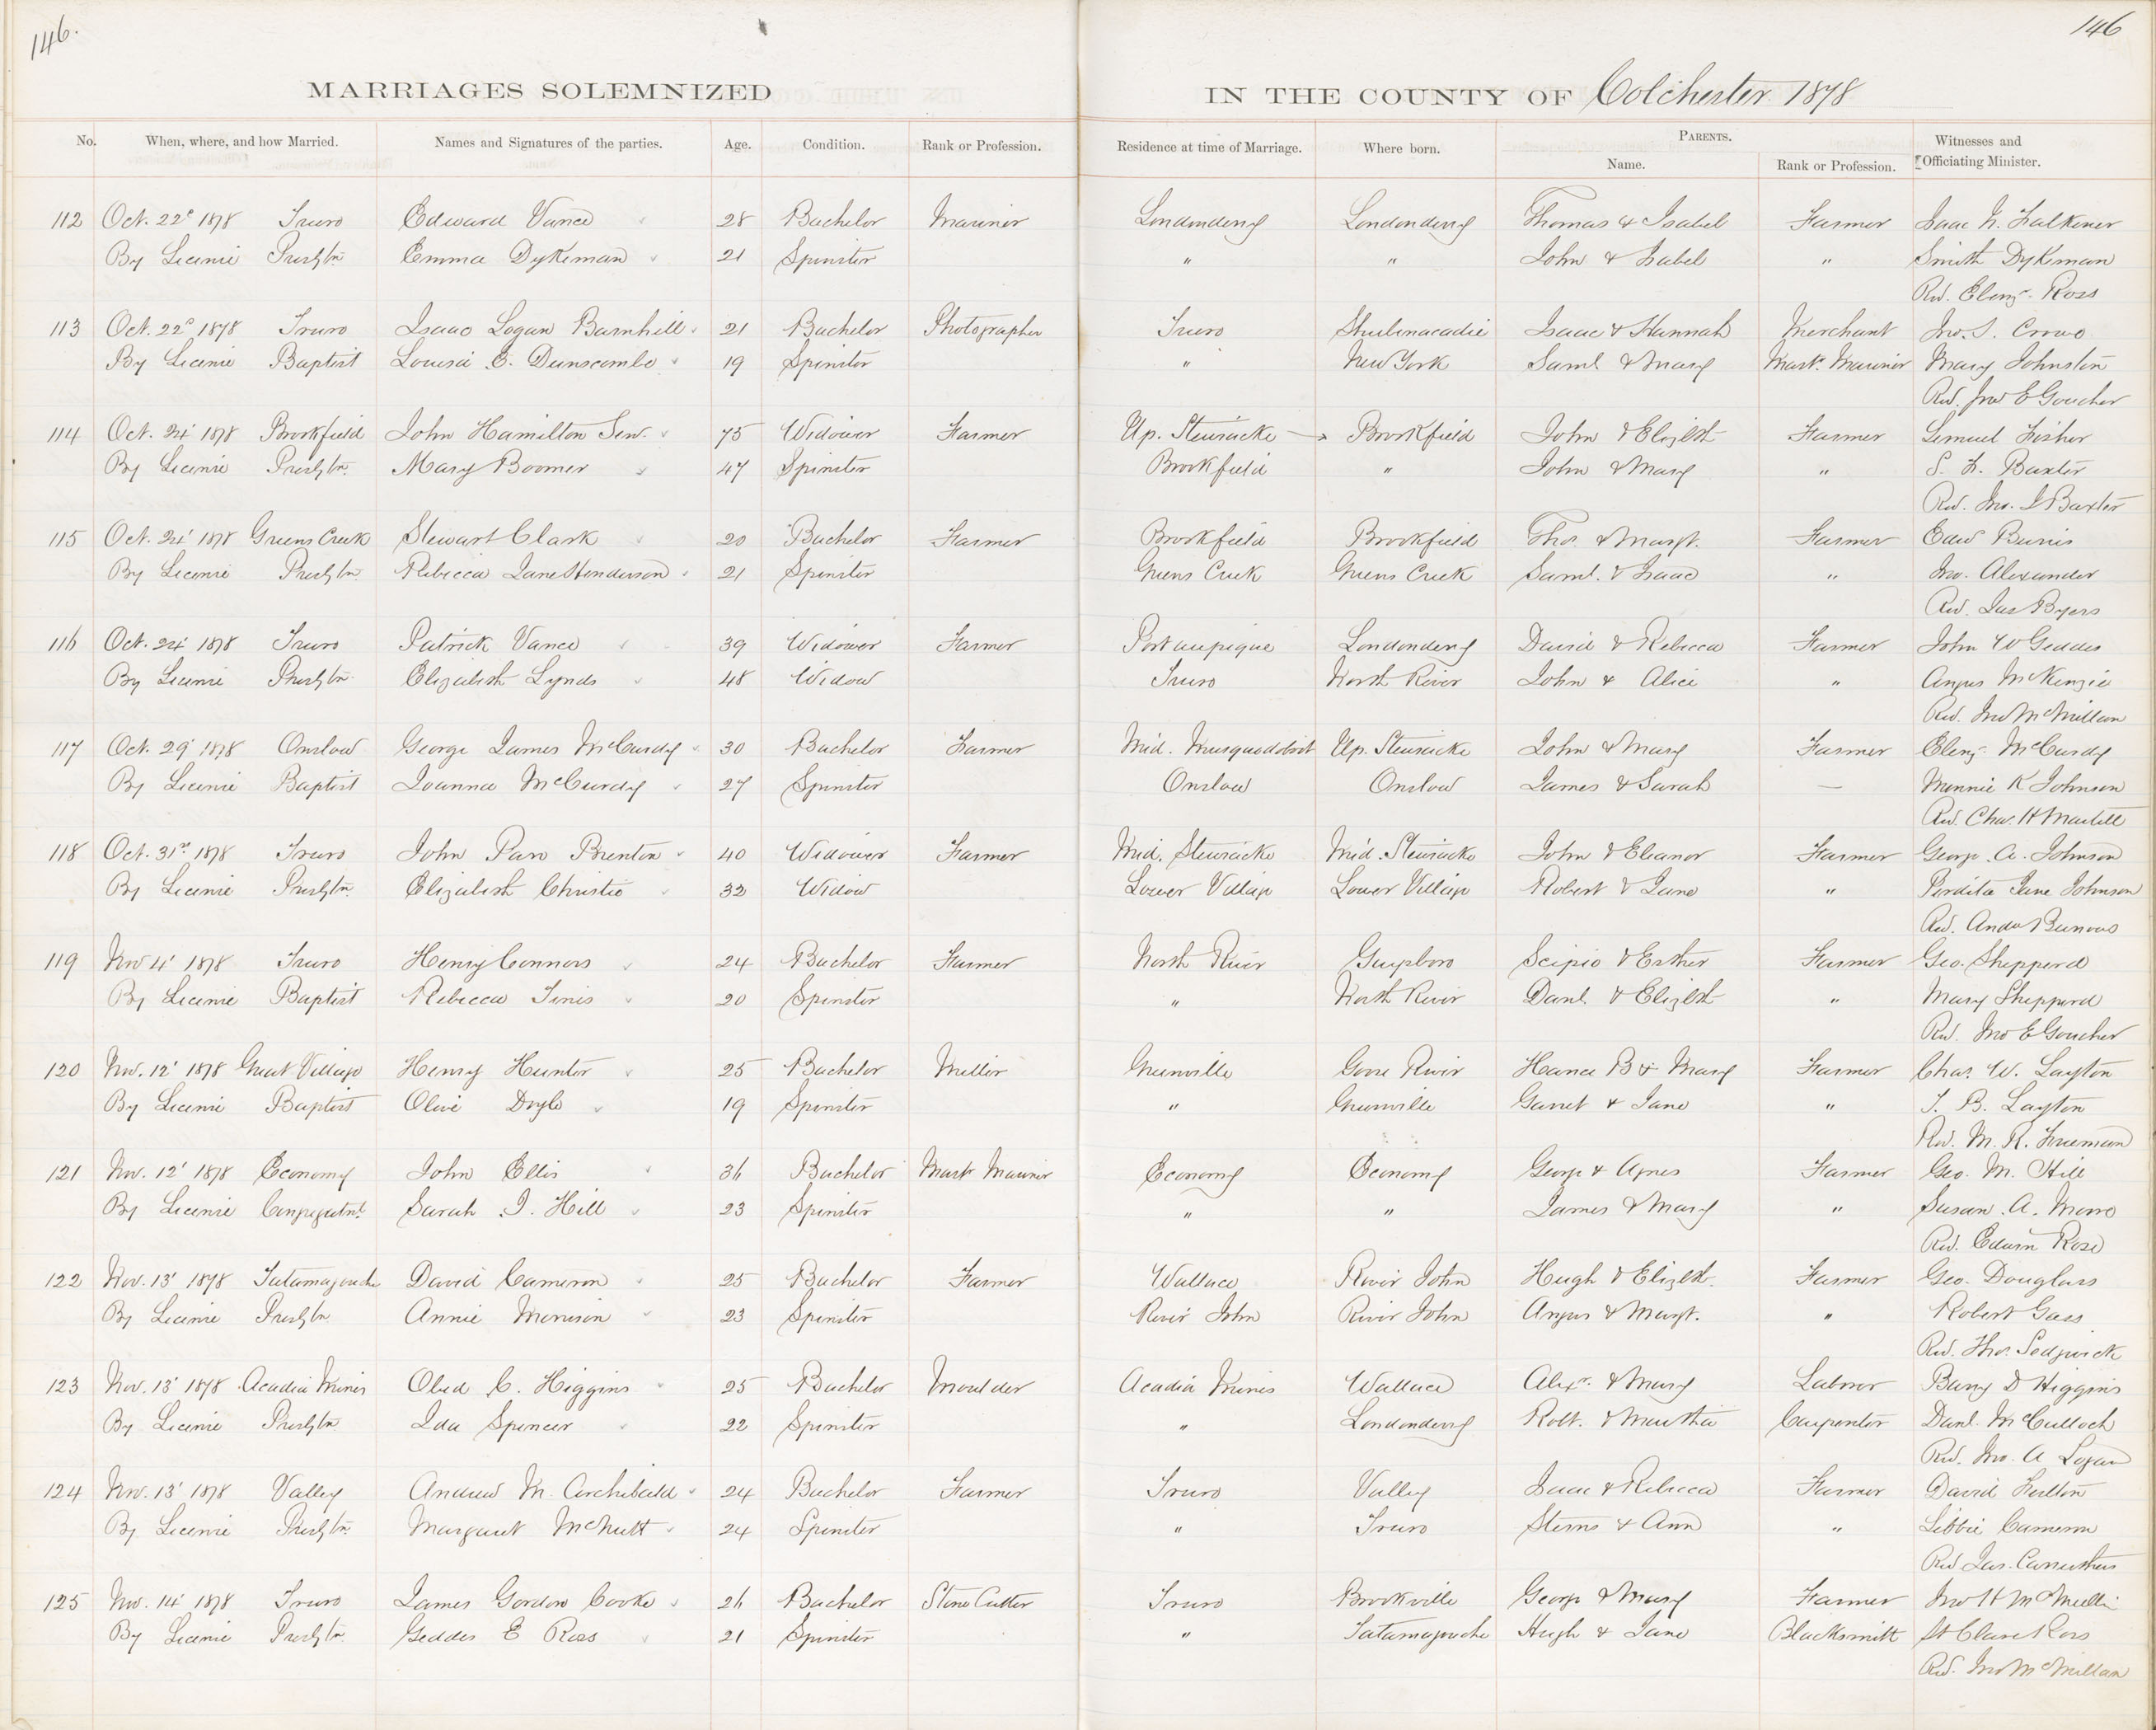 146.
146
MARRIAGES SOLEMNIZED IN THE COUNTY OF Colchester 1878
No. When, where, and how Married. Names and Signatures of the parties. Age. Condition. Rank or Profession. Residence at time of Marriage. Where born. PARENTS. Name. Rank or Profession. Witnesses and Officiating Minister.
112 Oct. 22d 1878 Truro Edward Vance 28 Bachelor Mariner Londonderry Londonderry Thomas & Isabel Farmer Isaac N. Falkener
By License Presbtn Emma Dykeman 21 Spinster " " John & Isabel " Smith Dykeman
Rev. Ebenr. Ross
113 Oct. 22d 1878 Truro Isaac Logan Barnhill 21 Bachelor Photographer Truro Shubenacadie Isaac & Hannah Merchant Jno. S.
By License Baptist Louisa E. Dunscombe 19 Spinster " New York Saml & Mary Mastr Mariner Mary Johnston
Rev. Jno E Goucher
114 Oct. 24' 1878 Brookfield John Hamilton Sen. 75 Widower Farmer Up. Stewiacke Brookfield John & Elizbth Farmer Lemuel Fisher
By License Presbtn Mary Boomer 47 Spinster Brookfield " John & Mary " S. L. Baxter
Rev. Jno. I Baxter
115 Oct. 24' 1878 Greens Creek Stewart Clark 20 Bachelor Farmer Brookfield Brookfield Thos. & Margt. Farmer Edw Burris
By License Presbtn Rebecca Jane Henderson 21 Spinster Greens Creek Greens Creek Saml. & Isaac " Jno. Alexander
Rev. Jas Byers
116 Oct. 24' 1878 Truro Patrick Vance 39 Widower Farmer Portaupique Londonderry David & Rebecca Farmer John W Geddes
By License Presbtn Elizabeth Lynds 48 Widow Truro North River John & Alice " Angus McKenzie
Rev. Jno McMillan
117 Oct. 29' 1878 Onslow George James McCurdy 30 Bachelor Farmer Mid. Musquodoboit Up. Stewiacke John & Mary Farmer Ebenr. McCurdy
By License Baptist Joanna McCurdy 27 Spinster Onslow Onslow James & Sarah — Minnie K Johnson
Rev. Chas. H Martell
118 Oct. 31st 1878 Truro John Brenton 40 Widower Farmer Mid. Stewiacke Mid. Stewiacke John & Eleanor Farmer George. A. Johnson
By License Presbtn Elizabeth Christie 32 Widow Lower Village Lower Village Robert & Jane " Perdita Jane Johnson
Rev. Andw Burrows
119 Nov 4' 1878 Truro Henry Connors 24 Bachelor Farmer North River Guysboro Scipio & Esther Farmer Geo. Shepperd
By License Baptist Rebecca 20 Spinster " North River Danl. & Elizbth " Mary Shepperd
Rev. Jno E Goucher
120 Nov. 12' 1878 Great Village Henry Hunter 25 Bachelor Miller Greenville Goose River Hance B & Mary Farmer Chas. W. Layton
By License Baptist Olive Doyle 19 Spinster " Greenville Garret & Jane " T. B. Layton
Rev. M. R. Freeman
121 Nov. 12' 1878 Economy John Ellis 36 Bachelor Mastr Mariner Economy Economy George & Agnes Farmer Geo. M. Hill
By License Congregatnl Sarah J. Hill 23 Spinster " " James & Mary " Susan. A.
Rev. Edwin Rose
122 Nov. 13' 1878 Tatamagouche David Cameron 25 Bachelor Farmer Wallace River John Hugh & Elizbth. Farmer Geo. Douglass
By License Presbtn Annie Morrison 23 Spinster River John River John Angus & Margt. " Robert Gass
Rev. Thos. Sedgwick
123 Nov. 13' 1878 Acadia Mines Obed C. Higgins 25 Bachelor Moulder Acadia Mines Wallace Alexr. & Mary Labour D Higgins
By License Presbtn Ida Spencer 22 Spinster " Londonderry Robt. & Martha Carpenter Danl. McCulloch
Rev. Jno. A Logan
124 Nov. 13' 1878 Valley Andrew M. Archibald 24 Bachelor Farmer Truro Valley Isaac & Rebecca Farmer David Fulton
By License Presbtn Margaret McNutt 24 Spinster " Truro Sterns & Ann " Libbie Cameron
Rev Jas. Carruthers
125 Nov. 14' 1878 Truro James Gordon Cooke 26 Bachelor Stone Cutter Truro Brookville George & Mary Farmer Jno H
By License Presbtn Geddes E Ross 21 Spinster " Tatamagouche Hugh & Jane Blacksmith St Clare Ross
Rev. Jno McMillan